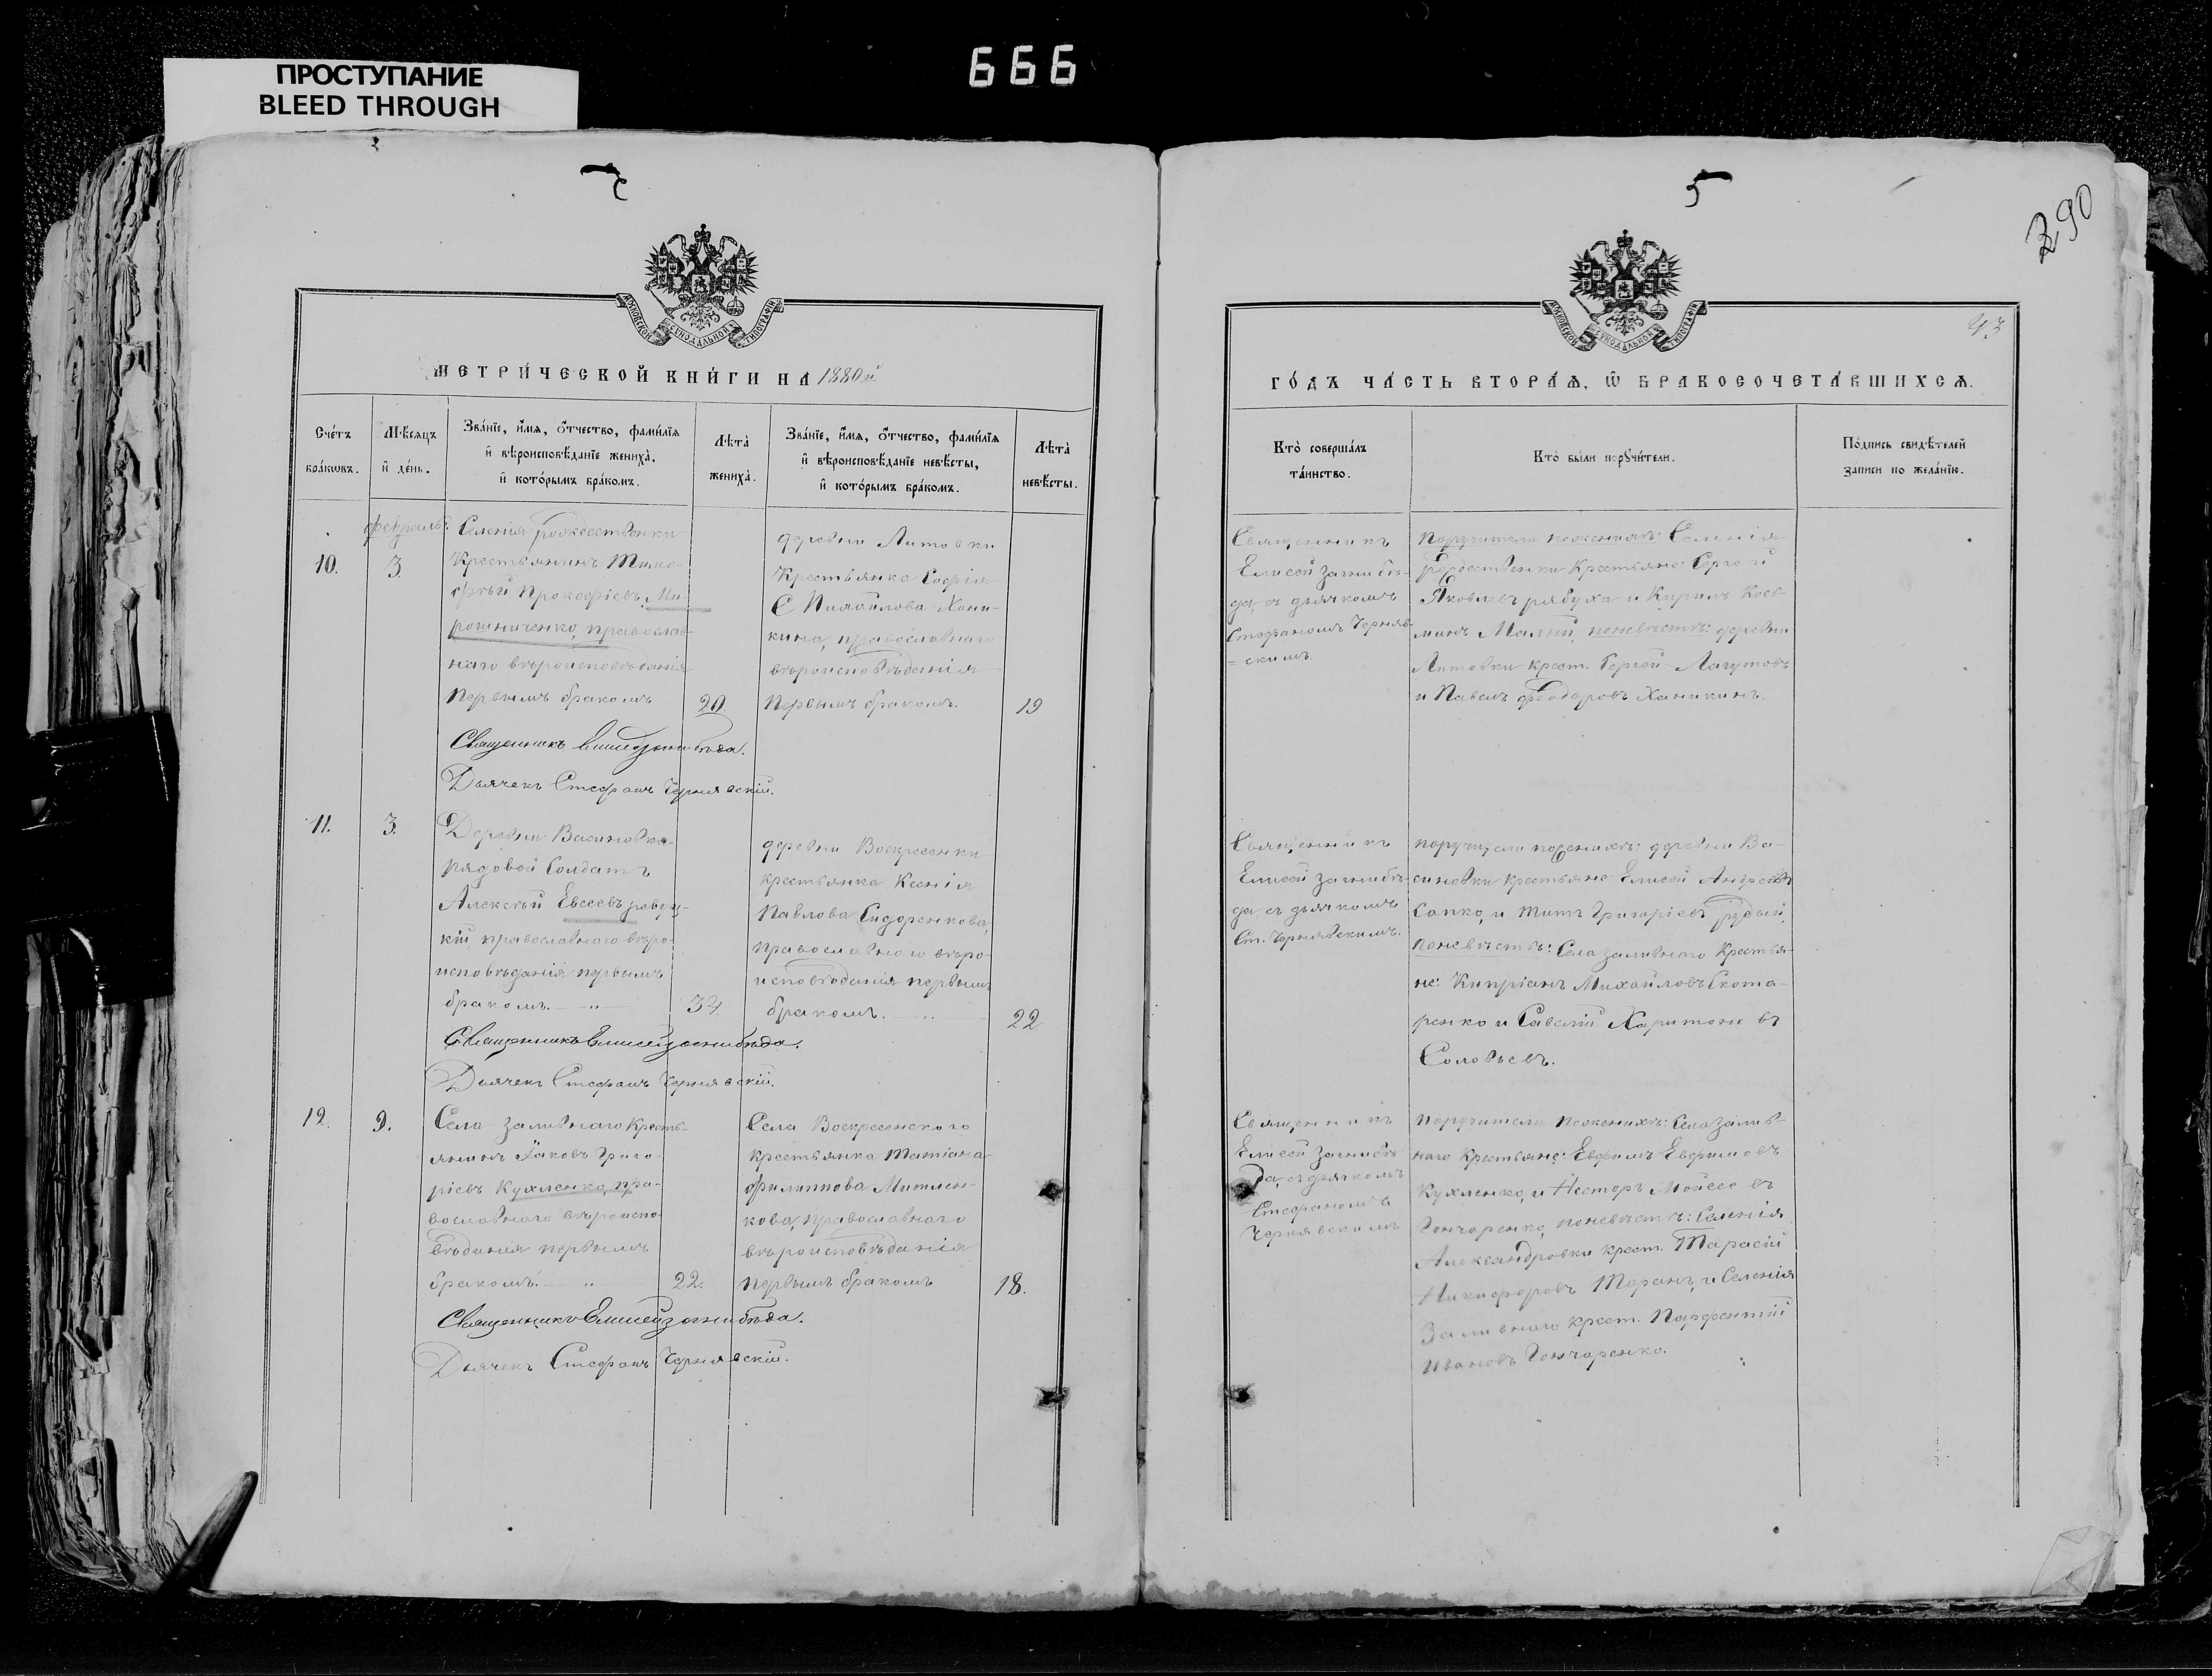 666
ПРОСТУПАНИЕ
BLEED THROUGH
5
290
МОСКОВСКОЙ СѴНОДАЛЬНОЙ ТИПОГРАФІИ
МЕТРИ́ЧЕСКОЙ КНИ́ГИ НА 1880й
Сче́тъ бра́кωвъ.
Мѣ́сяцъ и҆ де́нь.
Зва́нїе, и҆́мѧ, ѻ҆́тчество, фами́лїѧ
и҆ вѣроисповѣ́данїе жениха̀,
и҆ кото́рымъ бра́комъ.
Лѣта̀ жениха̀.
Зва́нїе, и҆́мѧ, ѻ҆́тчество, фами́лїѧ
и҆ вѣроисповѣ́данїе невѣ́сты,
и҆ кото́рымъ бра́комъ.
Лѣта̀ невѣ́сты.
февраль.
10.
3.
Селенія рождественки
Крестьянинъ Тимо-
фѣй Прокофіевъ Ми-
рошниченко, православ-
наго вѣроисповѣданія
первымъ бракомъ
20.
деревни Литовки
Крестьянка Софія
Михайлова Хани-
кина, православнаго
вѣроисповѣданія
первымъ бракомъ.
19
Священникъ Елисей Загнибѣда.
Дьячекъ Стефанъ Чернявскій.
11.
3.
Деревни Васиновки
рядовой Солдатъ
Алексѣй Евсеевъ
кій, православнаго вѣро-
исповѣданія первымъ
бракомъ. — „ —
34.
деревни Воскресенки
крестьянка Ксенія
Павлова Сидоренкова,
православнаго вѣро-
исповѣданія первымъ
бракомъ. — „ —
22
Священникъ Елисей Загнибѣда.
Дьячекъ Стефанъ Чернявскій.
12.
9.
Села Заливнаго Кресть-
янинъ Іаковъ Григо-
ріевъ Кухленко, пра-
вославнаго вѣроиспо-
вѣданія первымъ
бракомъ. — „ —
22.
Села Воскресенского
крестьянка Татіана
Филиппова Митлен-
кова, православнаго
вѣроисповѣданія
первымъ бракомъ
18.
Священникъ Елисей Загнибѣда.
Дьячекъ Стефанъ Чернявскій.
5
МОСКОВСКОЙ СѴНОДАЛЬНОЙ ТИПОГРАФІИ
43
ГО́ДЪ ЧА́СТЬ ВТОРА́Ѧ, Ѽ БРАКОСОЧЕТА́ВШИХСѦ.
Кто̀ соверша́лъ
та́инство.
Кто̀ бы́ли порꙋчи́тели.
По́дпись свидѣ́телей
за́писи по жела́нїю.
Священникъ
Елисей Загнибѣ-
да съ дьячкомъ
Стефаномъ Черняв-
=скимъ.
Поручители по женихѣ: Селенія
рождественки Крестьяне: Сергей
Яковлевъ рябуха и Кирилъ Кось-
минъ Малый, по невѣстѣ: деревни
Литовки крест. Сергей Лагутовъ
и Павелъ Феодоровъ Ханикинъ.
Священникъ
Елисей Загнибѣ-
да съ дьячкомъ
Ст. Чернявскимъ.
поручители по женихѣ: деревни Ва-
синовки крестьяне: Елисей Андреевъ
Сапко, и Титъ Григоріевъ рудый,
по невѣстѣ: Села Заливнаго Крестья-
не: Кипріанъ Михайловъ Скота-
ренко и Савелій Харитоновъ
Соловьевъ.
Священникъ
Елисей Загнибѣ-
да, съ дьячкомъ
Стефаномъ
Чернявскимъ
поручители по женихѣ: Села Залив-
наго Крестьяне: Евфимъ Евфимовъ
Кухленко, и Несторъ Мойсеевъ
Гончаренко, по невѣстѣ: Селенія
Александровки крест. Тарасій
Никифоровъ Таранъ, и Селенія
Заливнаго крест. Парфентій
Ивановъ Гончаренко.